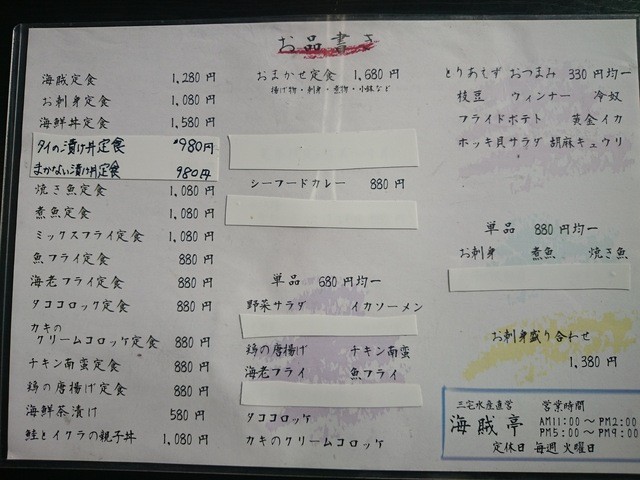 お品書き
海賊定食 1,280円
お刺身定食 1,080円
海鮮丼定食 1,580円
タイの漬け丼定食 980円
まかない漬け丼定食 980円
焼き魚定食 1,080円
煮魚定食 1,080円
ミックスフライ定食 1,080円
魚フライ定食 880円
海老フライ定食 880円
タココロッケ定食 880円
カキの
クリームコロッケ定食 880円
チキン南蛮定食 880円
鶏の唐揚げ定食 880円
海鮮茶漬け 580円
鮭とイクラの親子丼 1,080円
おまかせ定食 1,680円
揚げ物・刺身・煮物・小鉢など
シーフードカレー 880円
単品 680円均一
野菜サラダ イカソーメン
鶏の唐揚げ チキン南蛮
海老フライ 魚フライ
タココロッケ
カキのクリームコロッケ
とりあえず おつまみ 330円均一
枝豆 ウィンナー 冷奴
フライドポテト 黄金イカ
ホッキ貝サラダ 胡麻キュウリ
単品 880円均一
お刺身 煮魚 焼き魚
お刺身盛り合わせ
1,380円
三宅水産直営 営業時間
海賊亭 AM11:00～PM2:00
PM5:00～PM9:00
定休日 毎週 火曜日